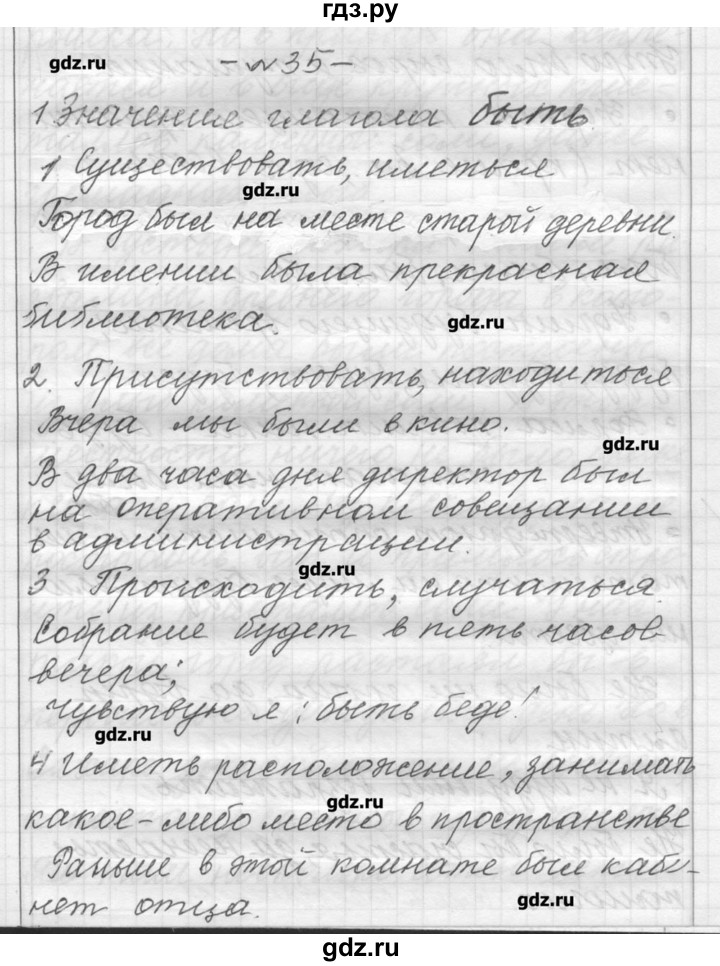 гдз.ру
gdz.ru
- №35 -
1 Значение глагола быть
1 Существовать, иметься
gdz.ru
Город был на месте старой деревни.
В имении была прекрасная
библиотека.
gdz.ru
2. Присутствовать, находиться
Вчера мы были в кино.
gdz.ru
В два часа дня директор был
на оперативном совещании
в администрации.
gdz.ru
3 Происходить, случаться.
Собрание будет в пять часов
вечера;
Чувствую я: быть беде!
gdz.ru
4 Иметь расположение, занимать
gdz.ru
какое-либо место в пространстве
Раньше в этой комнате был каби-
нет отца.
gdz.ru
gdz.ru